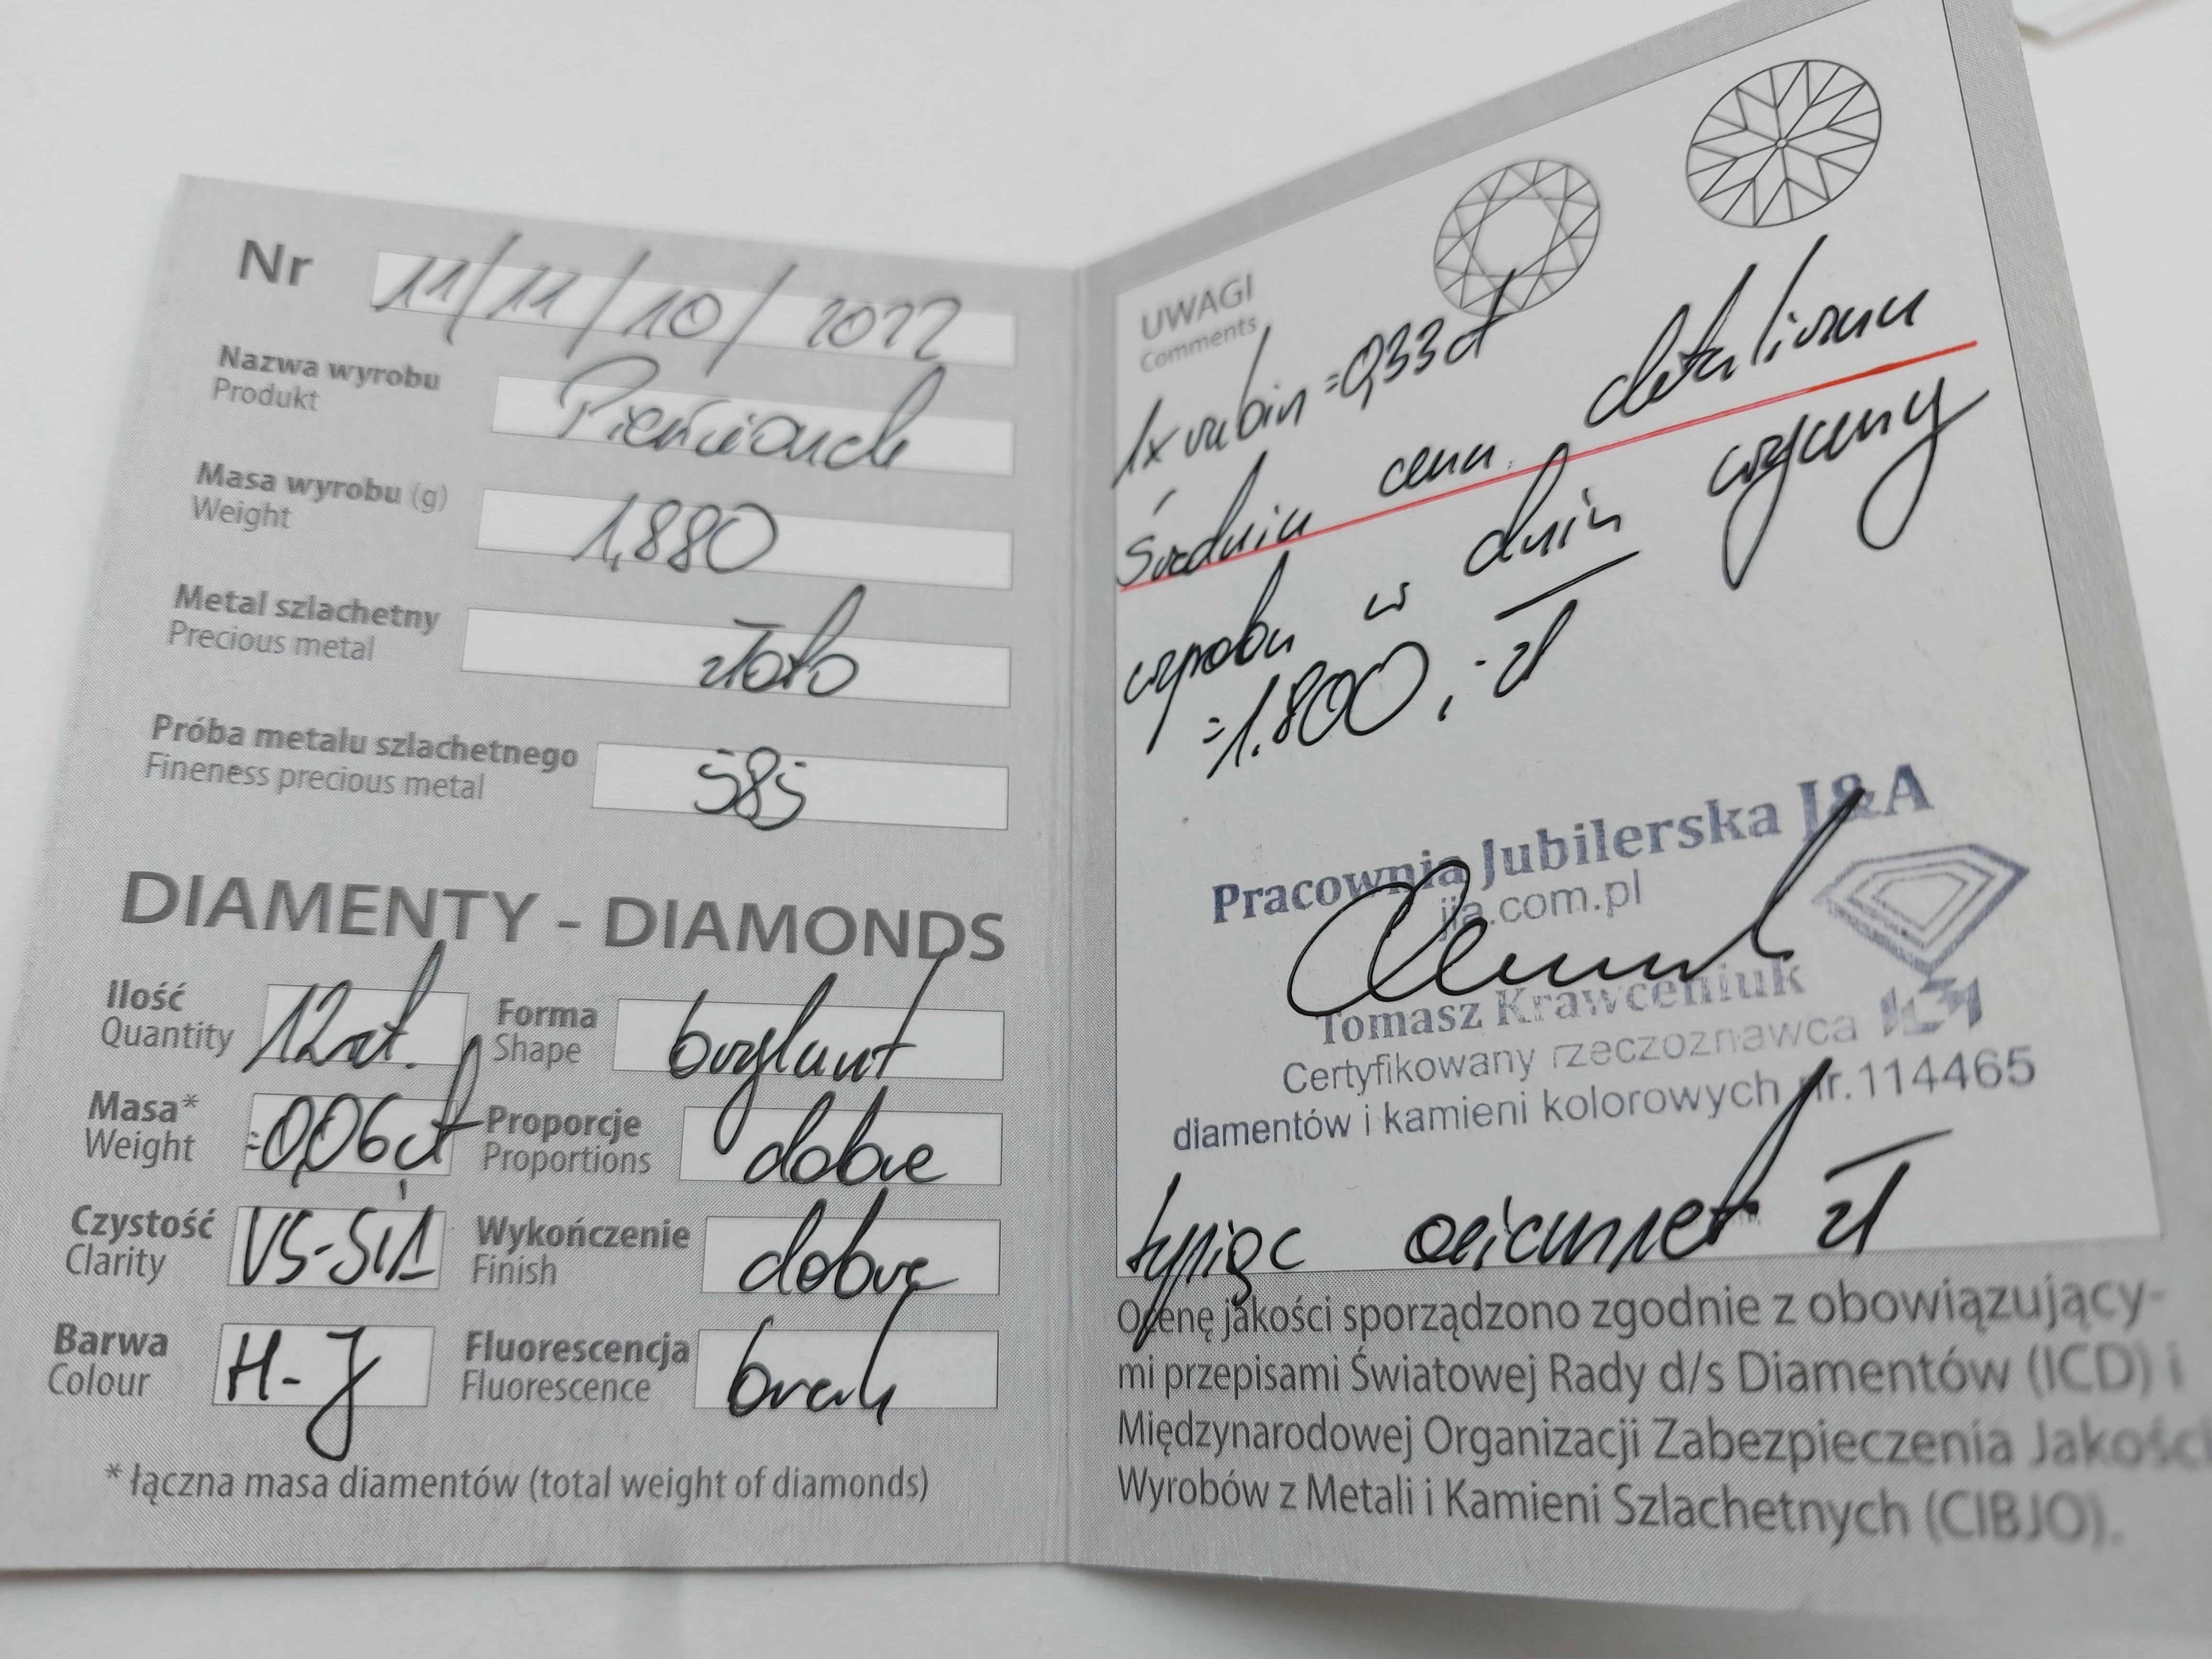 Nr 11/11/10/2022
Nazwa wyrobu
Produkt
Pierścionek
Masa wyrobu (g)
Weight
1,880
Metal szlachetny
Precious metal
złoto
Próba metalu szlachetnego
Fineness precious metal
585
DIAMENTY - DIAMONDS
Ilość
Quantity
12szt.
Forma
Shape
brylant
Masa*
Weight
=0,06ct
Proporcje
Proportions
dobre
Czystość
Clarity
VS-Si1
Wykończenie
Finish
dobre
Barwa
Colour
H-J
Fluorescencja
Fluorescence
brak
* łączna masa diamentów (total weight of diamonds)
UWAGI
Comments
1x rubin =0,33ct
Średnia cena detaliczna
wyrobu w dniu wyceny
=1.800,- zł
Pracownia Jubilerska J&A
jja.com.pl
Tomasz Krawceniuk
Certyfikowany rzeczoznawca
diamentów i kamieni kolorowych nr.114465
tysiąc osiemset zł
Ocenę jakości sporządzono zgodnie z obowiązujący-
mi przepisami Światowej Rady d/s Diamentów (ICD) i
Międzynarodowej Organizacji Zabezpieczenia Jakości
Wyrobów z Metali i Kamieni Szlachetnych (CIBJO).